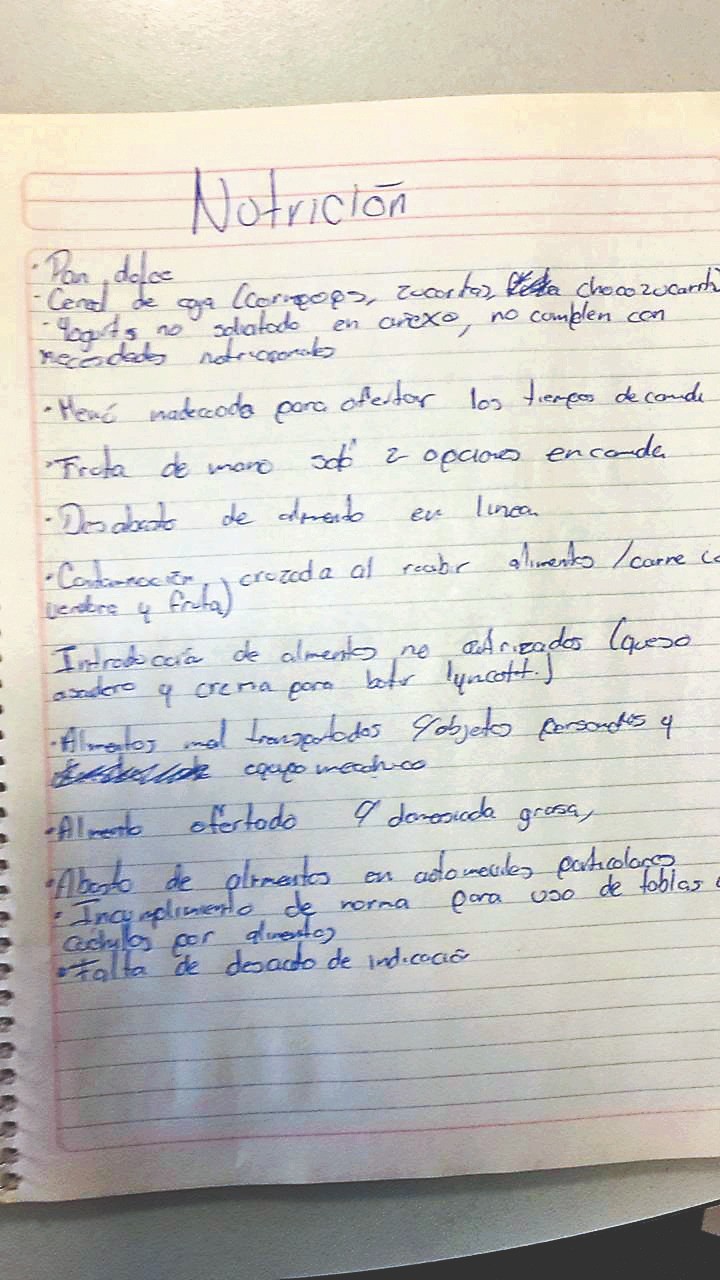 Nutrición
· Pan dulce
- Cereal de caja (cornpops, zucaritas, chocozucarit
- Yogurts no solicitado en anexo, no cumplen con
necesidades nutricionales
· Menú inadecuado para ofertar los tiempos de comida
· Fruta de mano solo 2 opciones en comida
· Desabasto de alimento en linea
· Contaminación cruzada al recibir alimentos (carne co
verdura y fruta)
Introducción de alimentos no autorizados (queso
asadero y crema para batir lyncott.)
· Alimentos mal transportados objetos personales y
equipo mecánico
· Alimento ofertado demasiada grasa,
· Abasto de alimentos en automoviles particulares
· Incumplimiento de norma para uso de tablas
cuchillos por alimentos
· Falta de desacato de indicación